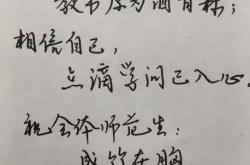 相信自己，
点滴学问已入心。
祝全体师范生：
成竹在胸